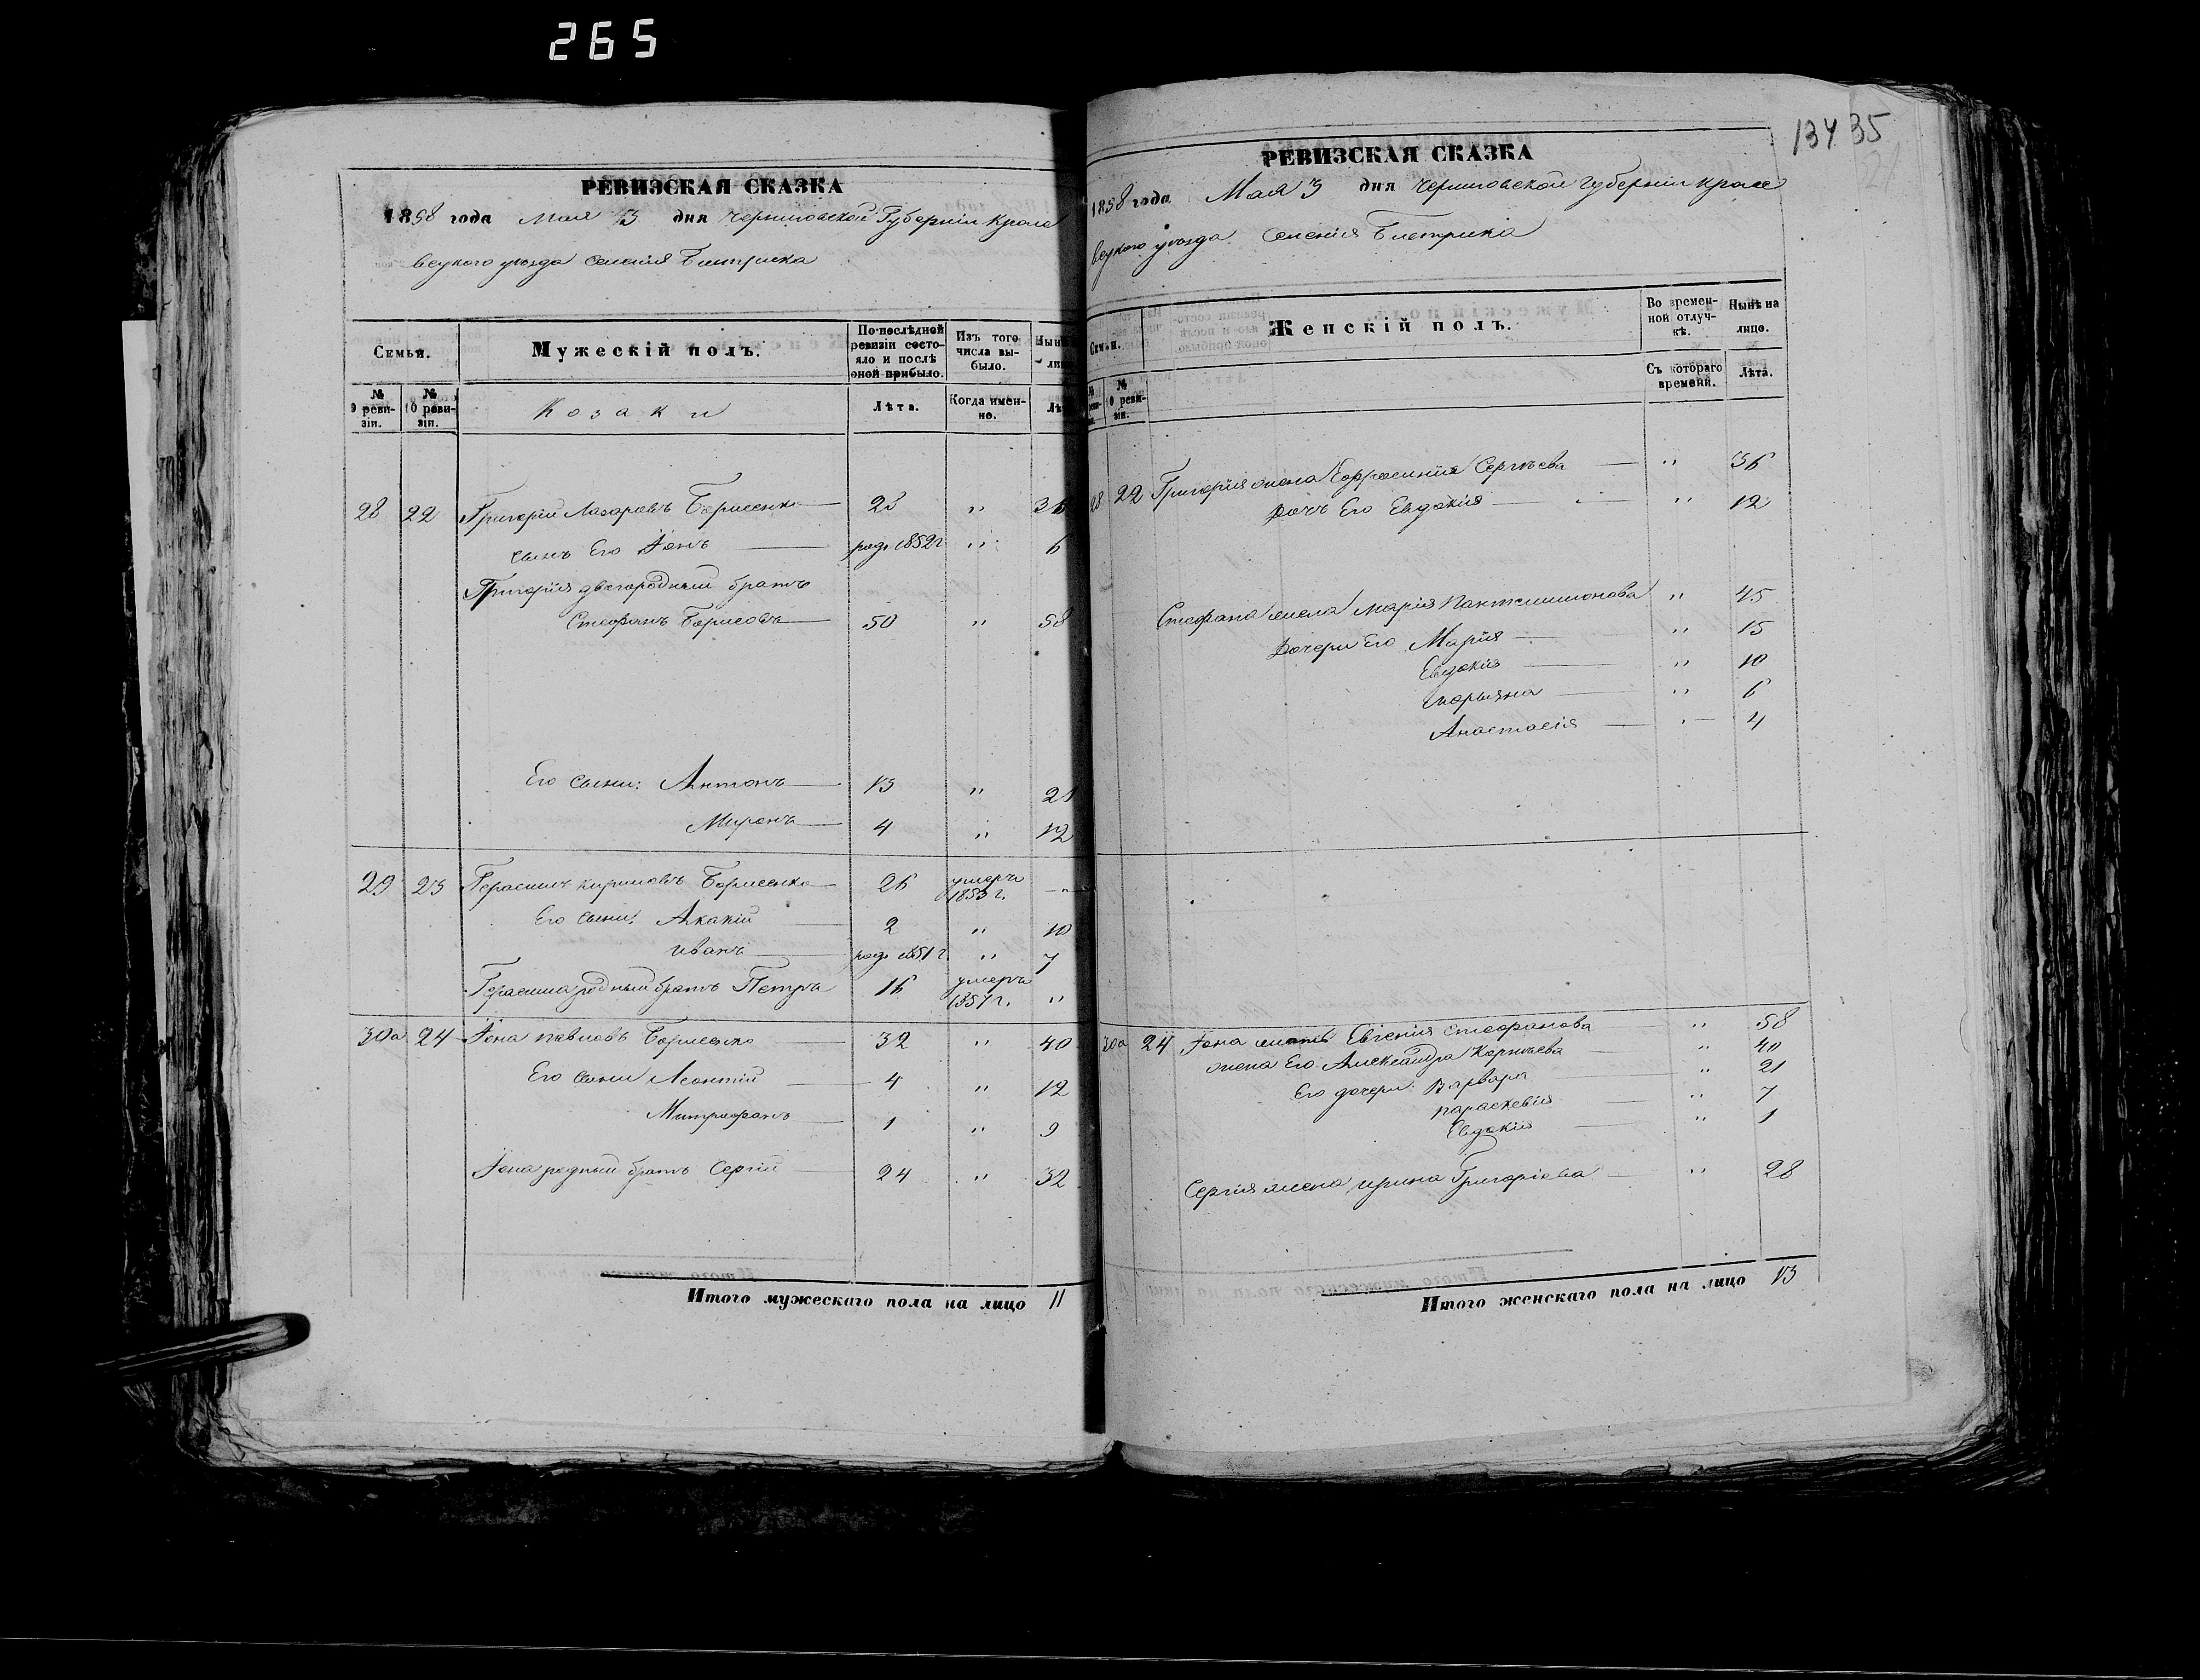 265
РЕВИЗСКАЯ СКАЗКА
1858 года Мая 3 дня Черниговской Губерніи Кроле
вецкого уѣзда Селенія Быстрика
Семьи.
Мужескій полъ.
По послѣдней ревизіи состояло и послѣ оной прибыло.
Изъ того числа выбыло.
Нынѣ
№ 9 реви-зіи.
№ 10 реви-зіи.
Козаки
Лѣта.
Когда имен-но.
28 22 Григорій Лазаровъ Борисенко 28 " 36
сынъ Его Іонъ род. 1852 г " 6
Григорія двоюродный братъ
Стефанъ Борисовъ 50 " 58
Его сыны: Антонъ 13 " 21
Миронъ 4 " 12
29 23 Герасимъ Кириловъ Борисенко 26 умеръ 1853 г. "
Его сыны: Акакій 2 " 10
Иванъ род. 1851 г " 7
Герасима родный братъ Петръ 16 умеръ 1851 г. "
30а 24 Іона Павловъ Борисенко 32 " 40
Его сыны Леонтій 4 " 12
Митрофанъ 1 " 9
Іона родный братъ Сергій 24 " 32
Итого мужескаго пола на лицо 11
134 35
РЕВИЗСКАЯ СКАЗКА
1858 года Мая 3 дня Черниговской Губерніи Кроле
вецкого уѣзда Селенія Быстрика
Семьи.
Женскій полъ.
Во времен-ной отлуч-кѣ.
Нынѣ на лицо.
№ 10 реви-зіи.
Съ котораго времени.
Лѣта.
28 22 Григорія жена Ефросинія Сергѣева " 36
Дочь Его Евдокія " 12
Стефана жена Марія Пантелимонова " 45
Дочери Его Марія " 15
Евдокія " 10
Марьяна " 6
Анастасія " 4
30а 24 Іона мать Евгенія Стефанова " 58
жена Его Александра Корнѣева " 40
Его дочери: Варвара " 21
Параскевія " 7
Евдокія " 1
Сергія жена Ирина Григоріева " 28
Итого женскаго пола на лицо 13